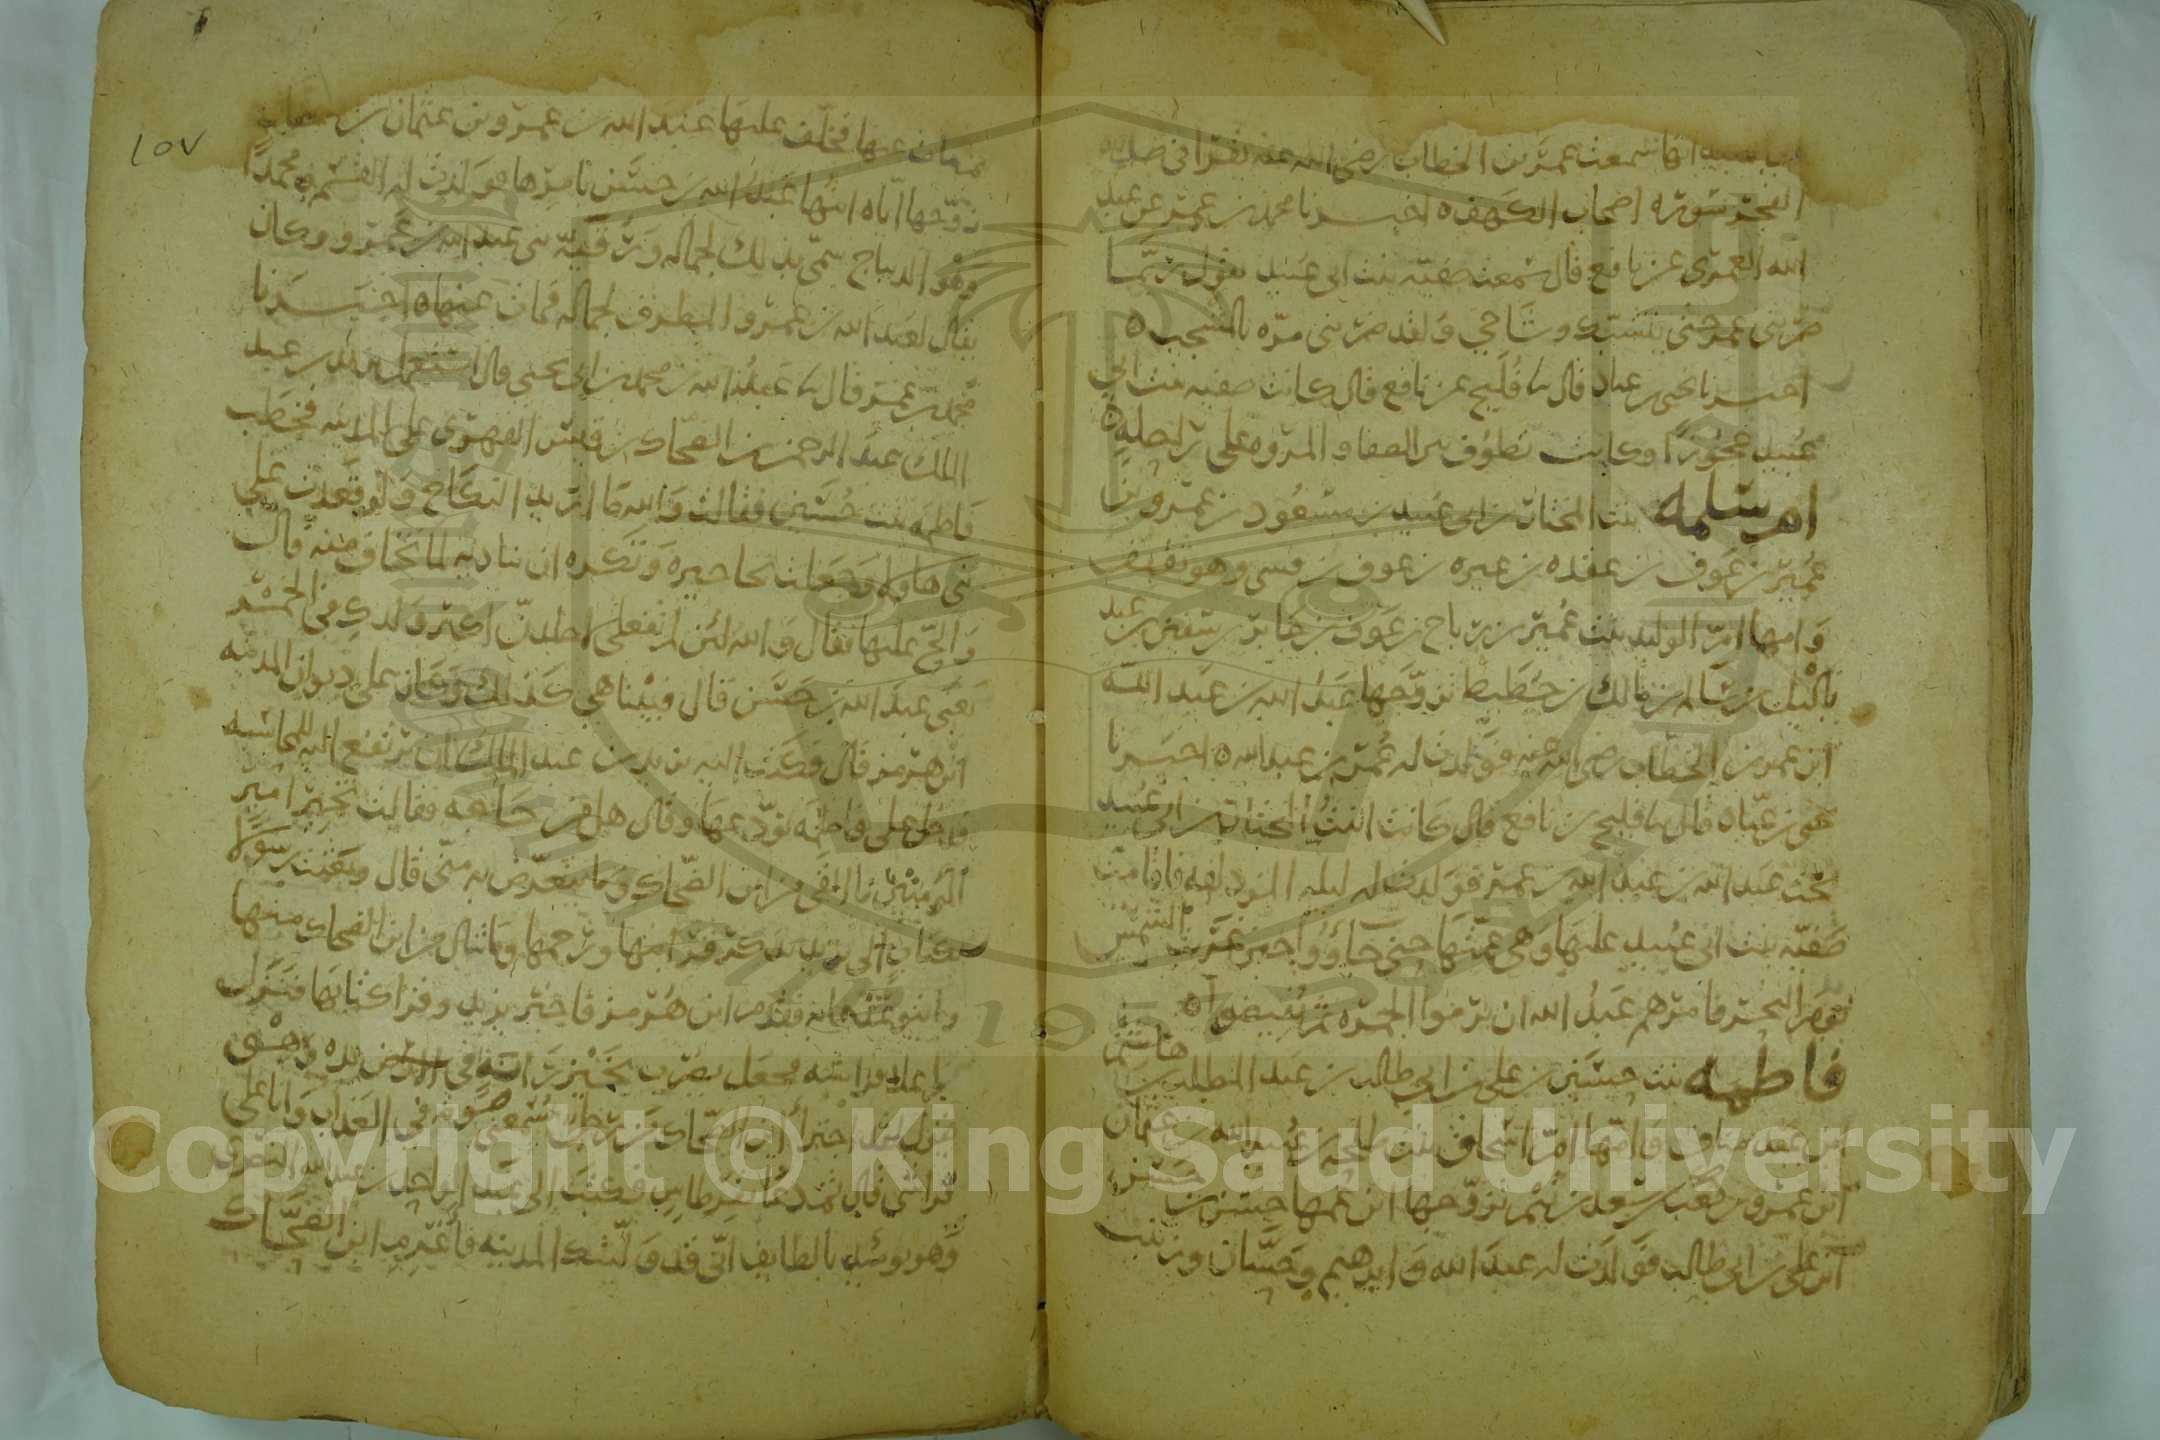 انها سمعت عمر بن الخطاب رضى الله عنه يقرا فى صلاه
الفجر سوره اصحاب الكهف ه اخبرنا محمد بن عمر عن عبد
الله العمرى عن نافع قال سمعت صفيه بنت ابى عبيد تقول ربما
ضربنى عمر حتى ينشتك وشاحى ولقد ضربنى مره بالشجب ه
اخبرنا يحيى بن عباد قال نا فليح عن نافع قال كانت صفيه بنت ابى
عبيد عجوزا وكانت تطوف بين الصفا والمروه على راحله ه
ام سلمه بنت المختار بن ابى عبيد بن مسعود بن عمرو بن
عمير بن عوف بن عقده بن غيره بن عوف بن قسى وهو ثقيف
وامها ام الوليد بنت عمير بن رباح بن عوف بن جابر بن سفين بن عبد
ياليل بن سالم بن مالك بن حطيط تزوجها عبد الله بن عبد الله
ابن عمر بن الخطاب رضى الله عنه فولدت له عمر بن عبد الله ه اخبرنا
يحيى بن عباد قال نا فليح بن نافع قال كانت ابنة المختار بن ابى عبيد
تحت عبد الله بن عبد الله بن عمر فولدت له ليله المزدلفه فاقامت
صفيه بنت ابى عبيد عليها وهى عمتها حتى جاؤوا حين غربت الشمس
يوم النحر فامرهم عبد الله ان يرموا الجمره ثم يفيضوا ه
فاطمه بنت حسين بن على بن ابى طالب بن عبد المطلب بن هاشم
ابن عبد مناف وامها ام اسحاق بنت طلحه بن عبيد الله بن عثمان
ابن عمرو بن كعب بن سعد بن تيم تزوجها ابن عمها حسن بن حسن
ابن على بن ابى طالب فولدت له عبد الله وابرهيم وحسنا وزينب
ثم مات عنها فخلف عليها عبد الله بن عمرو بن عثمان بن عفان
زوجها اياه ابنها عبد الله بن حسن بامرها فولدت له القسم ومحمدا
وهو الديباج سمى بذلك لجماله ورقيه بنى عبد الله بن عمرو وكان
يقال لعبد الله بن عمرو المطرف لجماله فمات عنها ه اخبرنا
محمد بن عمر قال نا عبد الله بن محمد بن ابى يحيى قال استعمل يزيد بن عبد
الملك عبد الرحمن بن الضحاك بن قيس الفهرى على المدينه فخطب
فاطمه بنت حسين فقالت والله ما اريد النكاح ولقد قعدت على
بنى هاولا وجعلت تحاجزه وتكره ان تناديه لما تخاف منه قال
والح عليها فقال والله لئن لم تفعلى لاجلدن اكبر ولدك فى الخمر
يعنى عبد الله بن حسن قال فبينا هى كذلك وكان على ديوان المدينه
ابن هرمز قال فكتب اليه يزيد بن عبد الملك ان يرتفع اليه للمحاسبه
فدخل على فاطمه يودعها وقال هل من حاجه فقالت تخبر امير
المومنين بما القى من ابن الضحاك وما يتعرض به منى قال وبعثت رسولا
بكتاب الى يزيد يذكر قرابتها ورحمها وما ينال من ابن الضحاك منها
وما يتوعدها به فقدم ابن هرمز فاخبر يزيد وقرا كتابها فنزل
من اعلا فراشه فجعل يضرب بخيزرانه فى الارض بيده وهو
يقول لقد اجترأ ابن الضحاك من رجل يسمعنى صوته فى العذاب وانا على
فراشى قال ثم دعا بقرطاس فكتب الى عبد الواحد بن عبد الله النضرى
وهو يومئذ بالطايف انى قد وليتك المدينه فأغرم ابن الضحاك
١٥٧
Copyright © King Saud University
1957